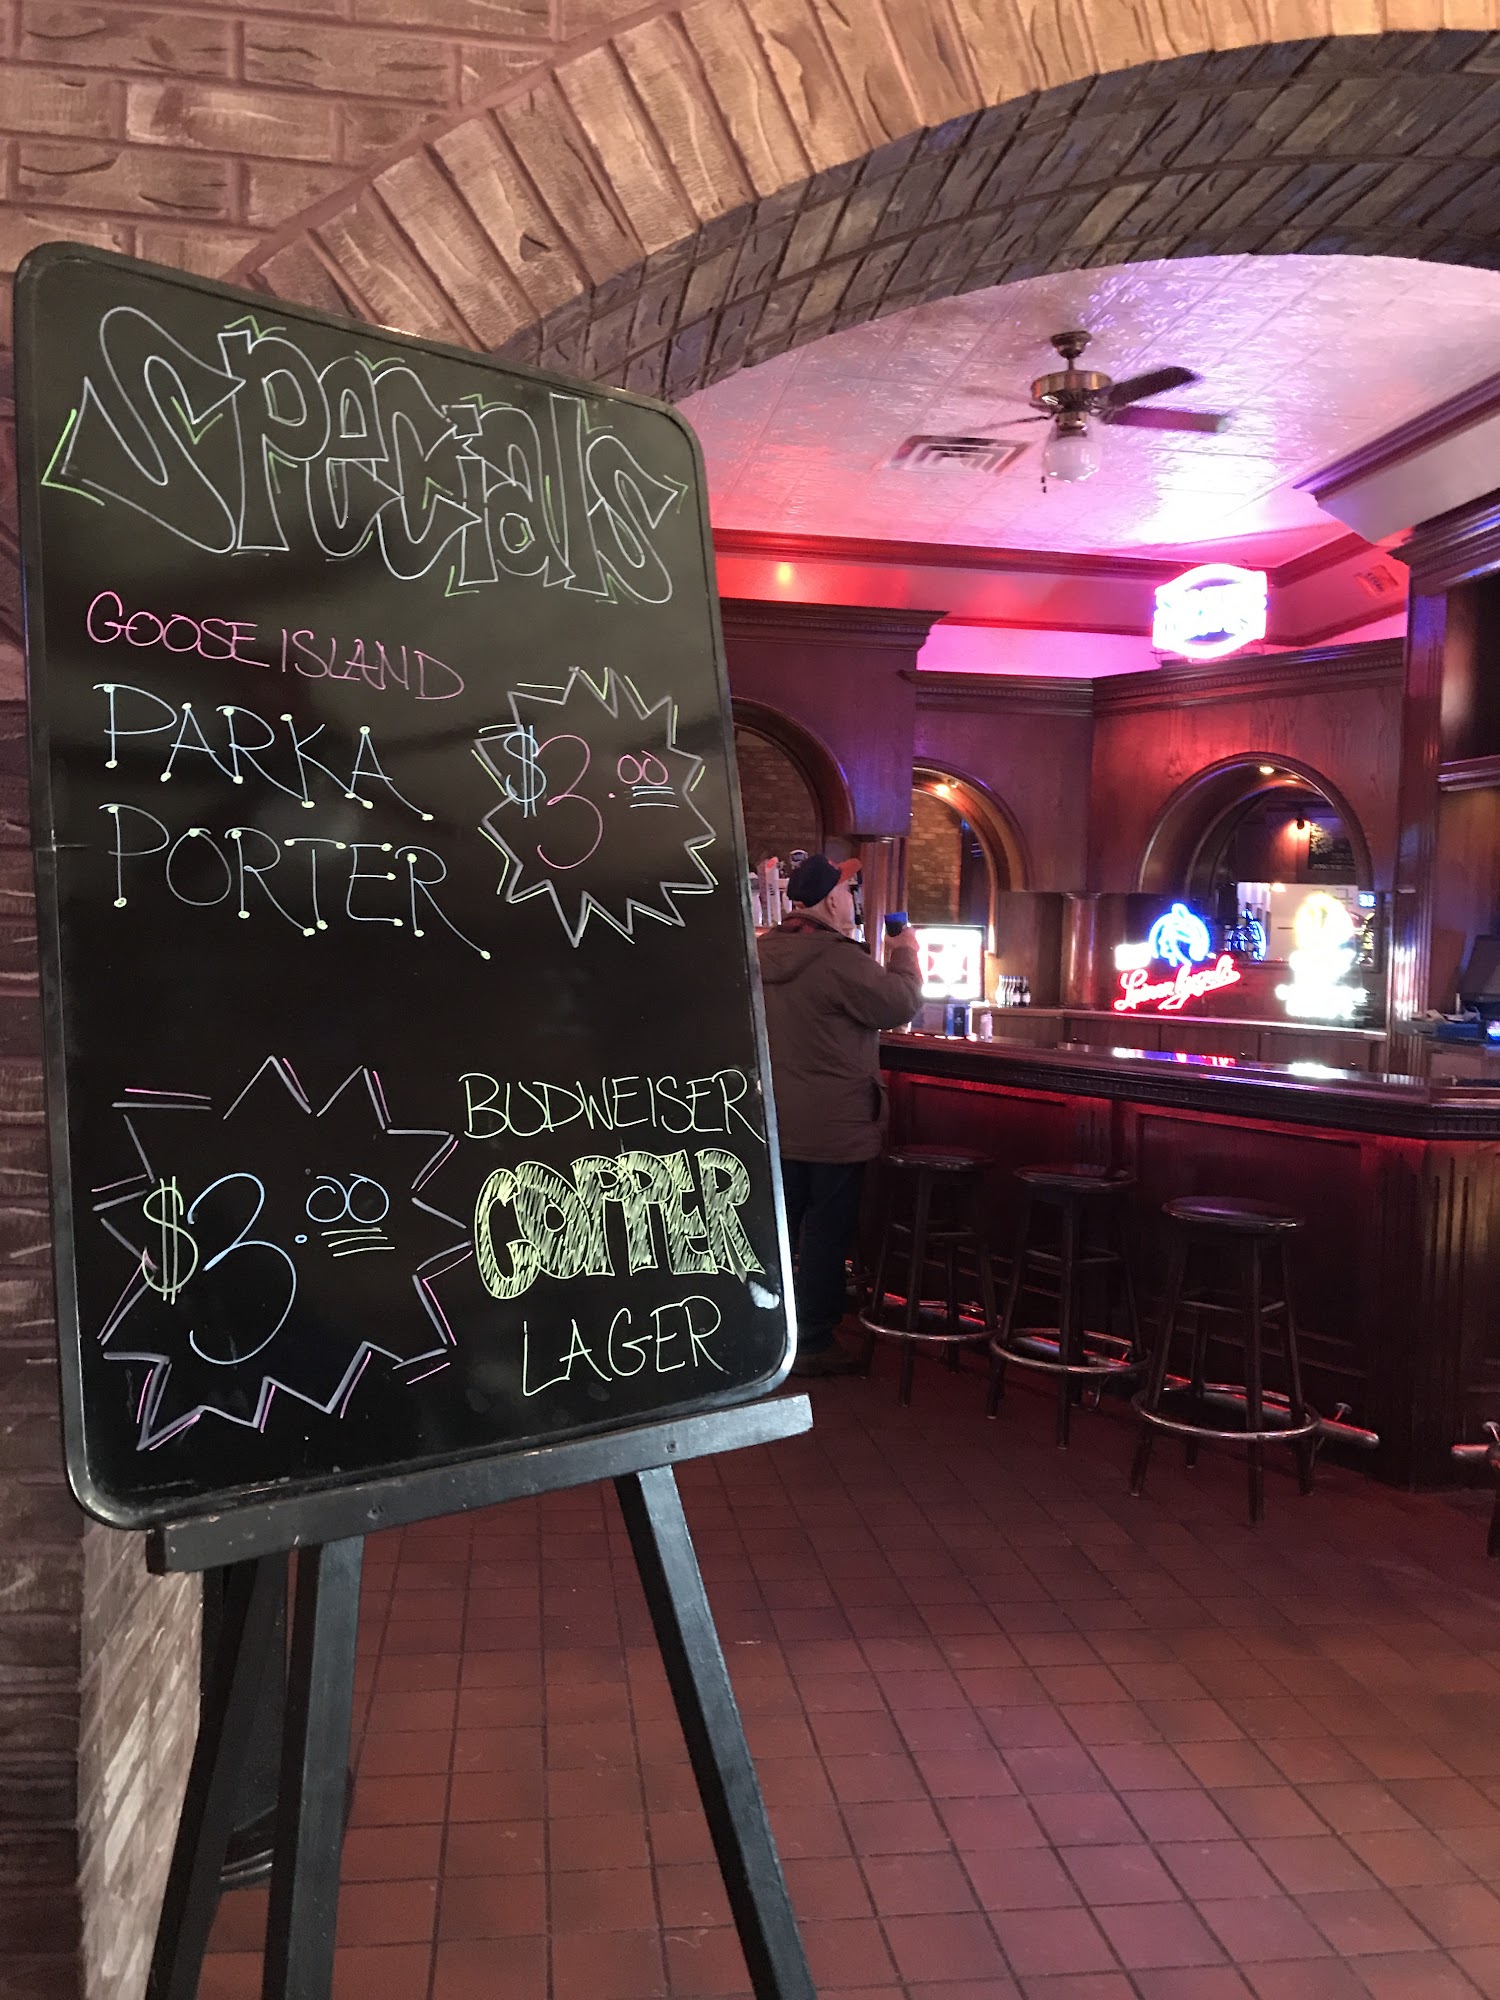 SPeCials
GOOSE ISLAND
PARKA
PORTER
$3.00
BUDWEISER
COPPER
LAGER
$3.00
Leinenkugel's